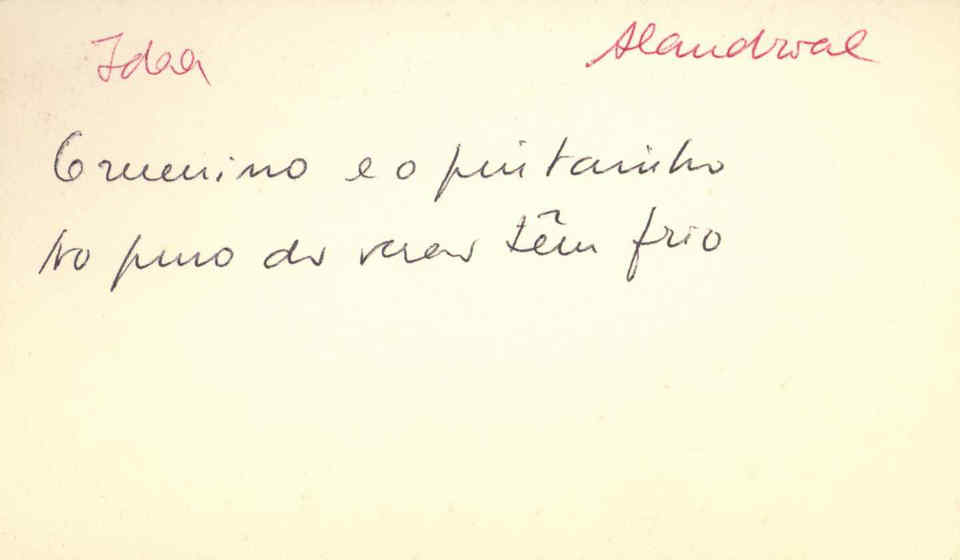 Idea Alandroal
O menino e o pintainho
No pino do verão têm frio